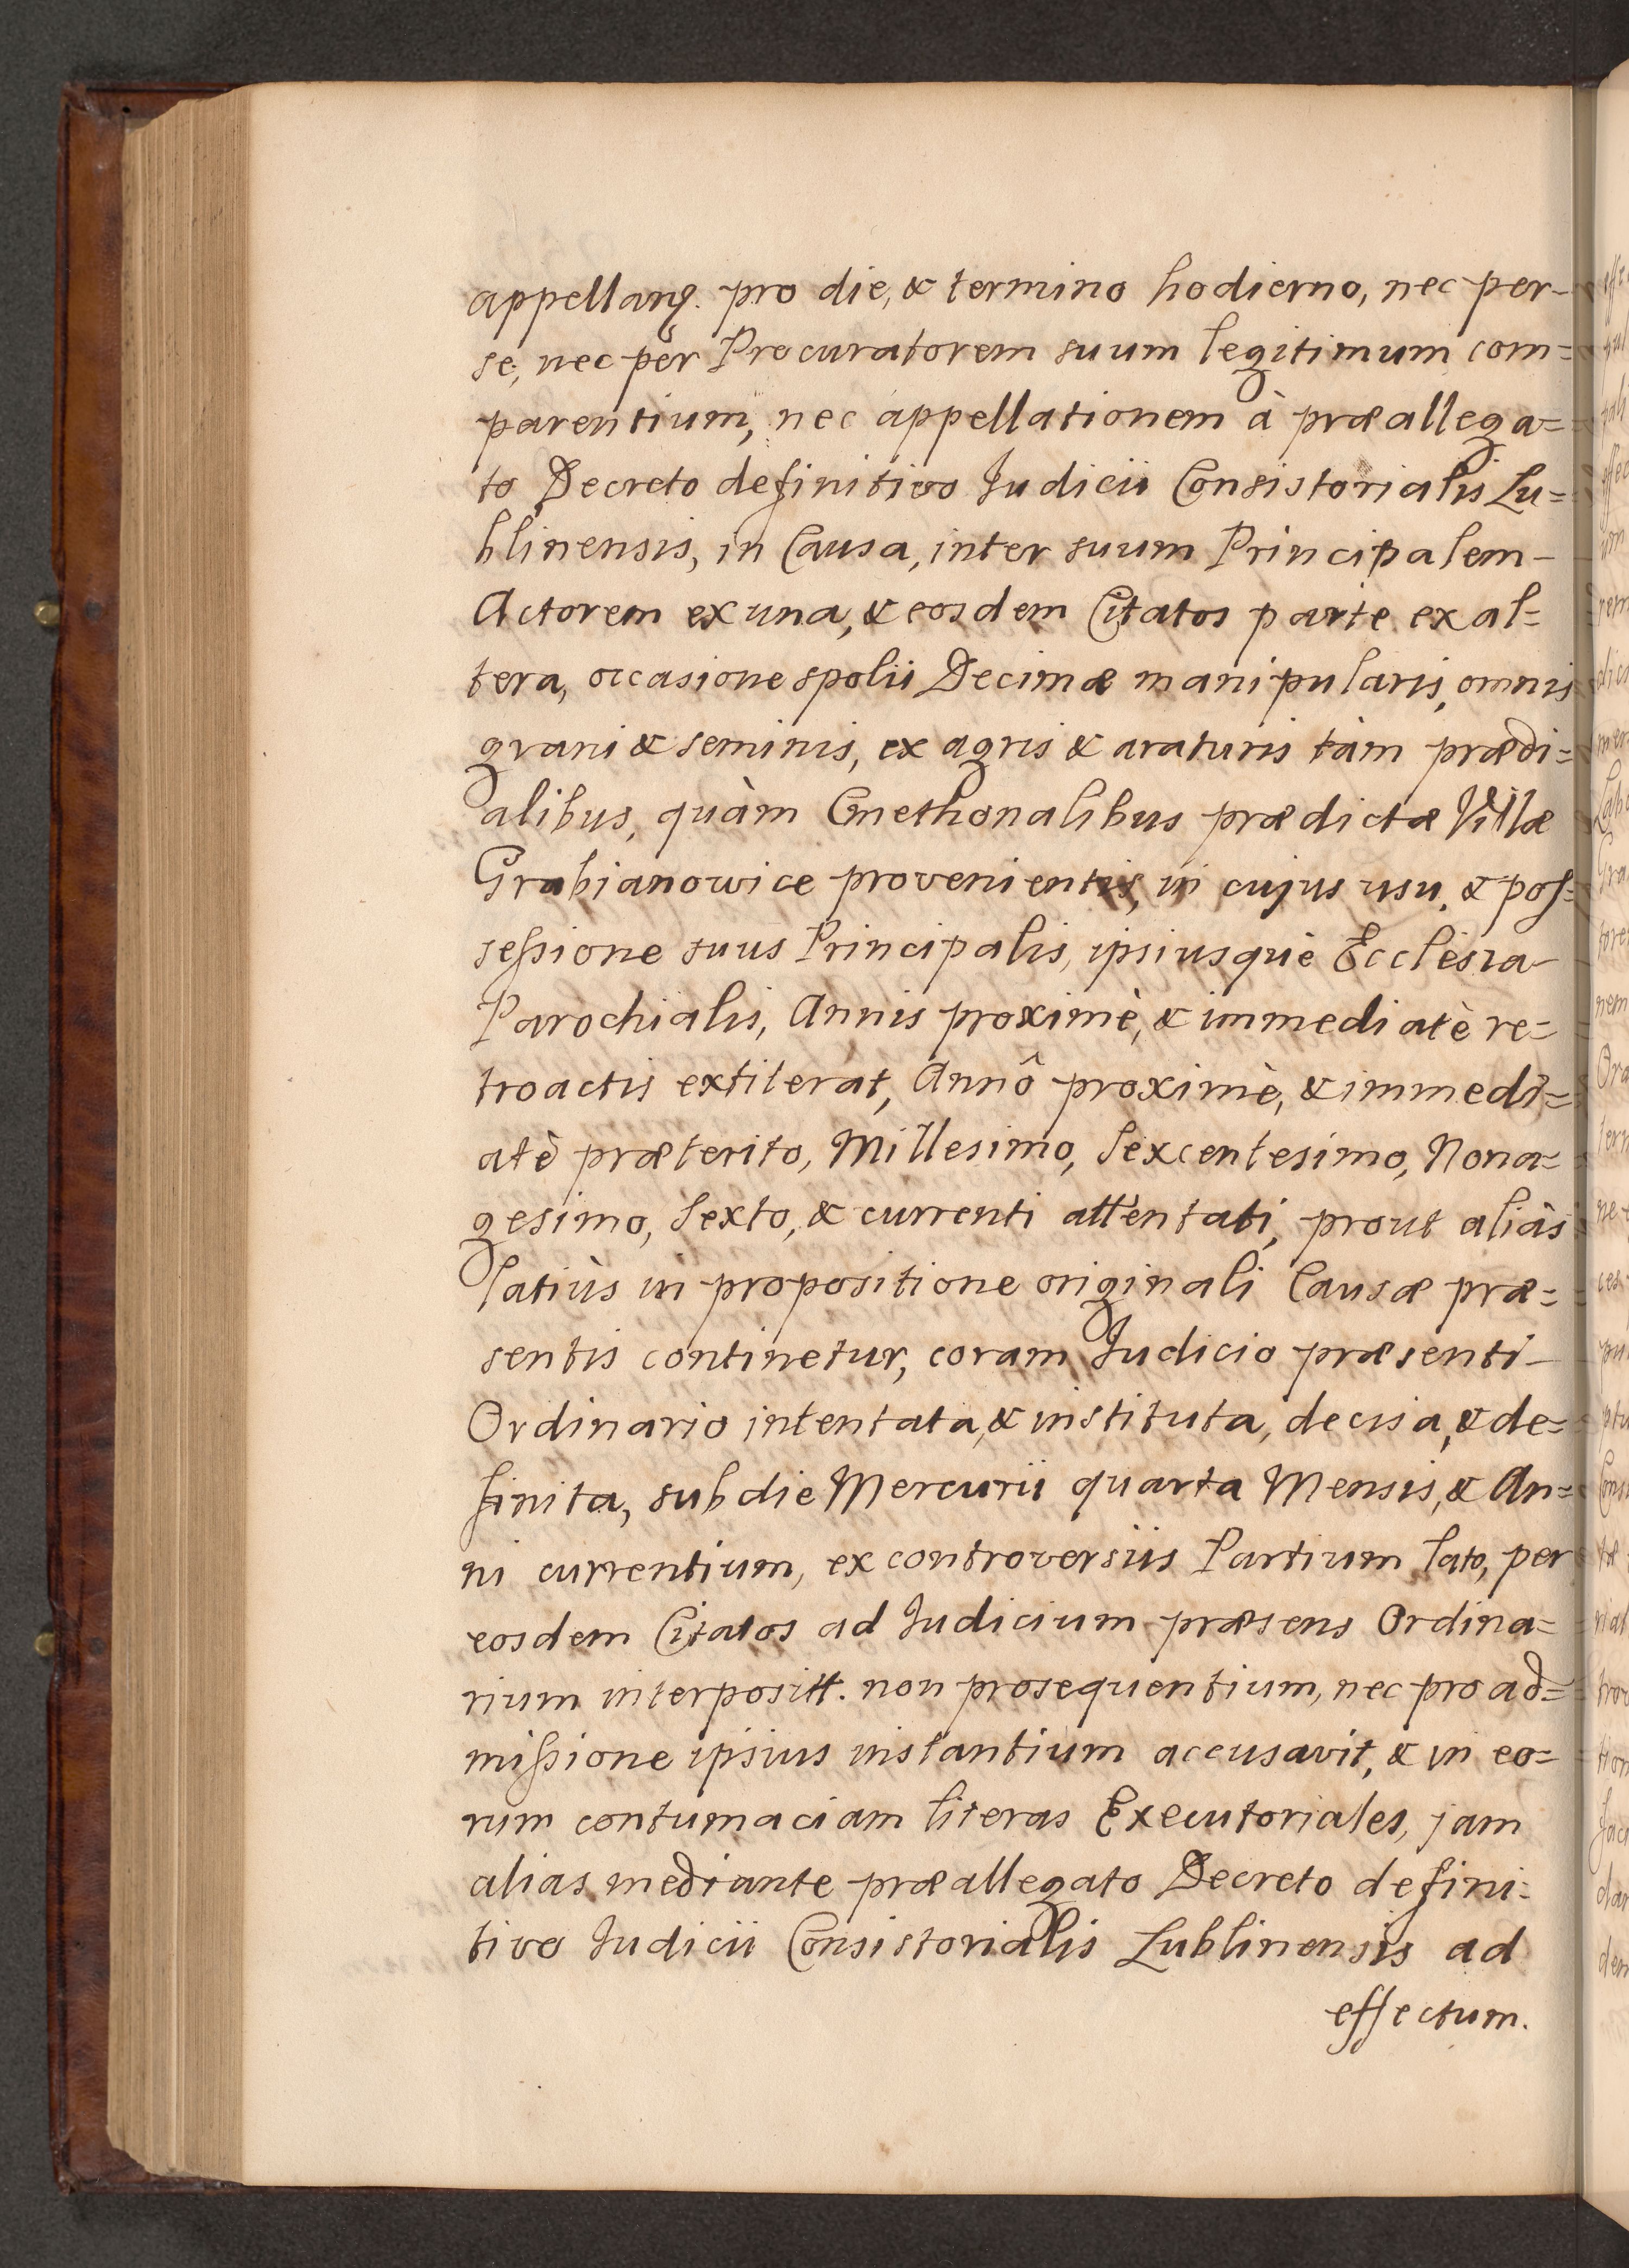 appellang. pro die, & termino hodierno, nec per-
se, nec per Procuratorem suum legitimum com=
parentium, nec appellationem à præallega=
to Decreto definitivo Judicii Consistorialis Lu=
blinensis, in Causa, inter suum Principalem-
Actorem ex una, & eosdem Citatos parte ex al=
tera, occasione spolii Decimæ manipularis, omnis
grani & seminis, ex agris & araturis tàm prædi=
alibus, quàm Cmethonalibus prædictæ Villæ
Grabianowice provenientis, in cujus usu, & pos=
sessione suus Principalis, ipsiusquè Ecclesia-
Parochialis, Annis proximè, & immediatè re=
troactis extiterat, Annô proximè, & immedi=
atè præterito, Millesimo, Sexcentesimo, Nona=
gesimo, Sexto, & currenti attentati, prout aliàs
latiùs in propositione originali Causæ præ=
sentis continetur, coram Judicio præsenti-
Ordinario intentata, & instituta, decisa, & de=
finita, sub die Mercurii quarta Mensis, & An=
ni currentium, ex controversiis Partium lato, per
eosdem Citatos ad Judicium præsens Ordina=
rium interpositt. non prosequentium, nec pro ad=
missione ipsius instantium accusavit, & in eo=
rum contumaciam literas Executoriales, jam
alias mediante præallegato Decreto defini=
tivo Judicii Consistorialis Lublinensis ad
effectum.